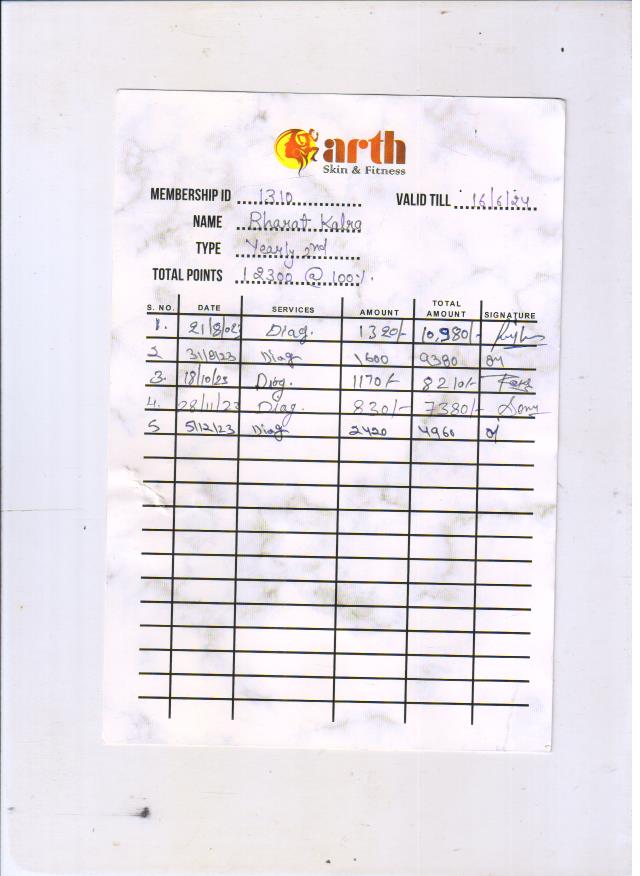 arth
Skin & Fitness
MEMBERSHIP ID 1310 VALID TILL 16/6/24
NAME Bharat Kalra
TYPE Yearly 2nd
TOTAL POINTS 12300 @ 100%
S. NO. DATE SERVICES AMOUNT TOTAL AMOUNT SIGNATURE
1. 21/8/023 Diag. 1320/- 10,980/-
2 31/8/23 Diag 1600 9380
3. 18/10/23 Diag. 1170/- 8210/-
4. 28/11/23 Diag. 830/- 7380/-
5 5/12/23 Diag 2420 4960